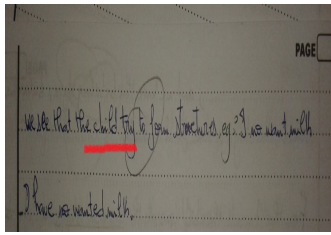 PAGE
we see that the child try to form structures, eg: "I no want milk
I have no wanted milk.